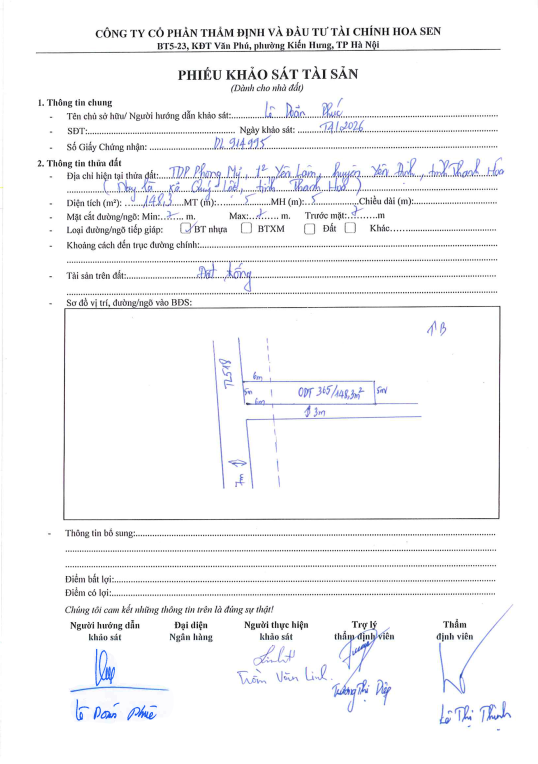 CÔNG TY CỔ PHẦN THẨM ĐỊNH VÀ ĐẦU TƯ TÀI CHÍNH HOA SEN
BT5-23, KĐT Văn Phú, phường Kiến Hưng, TP Hà Nội
PHIẾU KHẢO SÁT TÀI SẢN
(Dành cho nhà đất)
1. Thông tin chung
- Tên chủ sở hữu/ Người hướng dẫn khảo sát: Lê Doãn Phúc
- SĐT: Ngày khảo sát: T4/2026
- Số Giấy Chứng nhận: DL 914995
2. Thông tin thửa đất
- Địa chỉ hiện tại thửa đất: TDP Phong Mỹ, Yên Lâm, huyện Yên Định, tỉnh Thanh Hóa
(Nay là xã Lộc, tỉnh Thanh Hóa)
- Diện tích (m²): 148,3 MT (m): 5 MH (m): 5 Chiều dài (m):
- Mặt cắt đường/ngõ: Min: 7 m. Max: 7 m. Trước mặt: 7 m
- Loại đường/ngõ tiếp giáp: BT nhựa BTXM Đất Khác
- Khoảng cách đến trục đường chính:
- Tài sản trên đất: Đất trống
- Sơ đồ vị trí, đường/ngõ vào BĐS:
B
TL518
6m
5m
ODT 365/148,3m²
5m
6m
3m
- Thông tin bổ sung:
Điểm bất lợi:
Điểm có lợi:
Chúng tôi cam kết những thông tin trên là đúng sự thật!
Người hướng dẫn khảo sát
Đại diện Ngân hàng
Người thực hiện khảo sát
Trợ lý thẩm định viên
Thẩm định viên
Lê Doãn Phúc
Trần Văn Linh
Trương Thị Diệp
Lê Thị Thinh